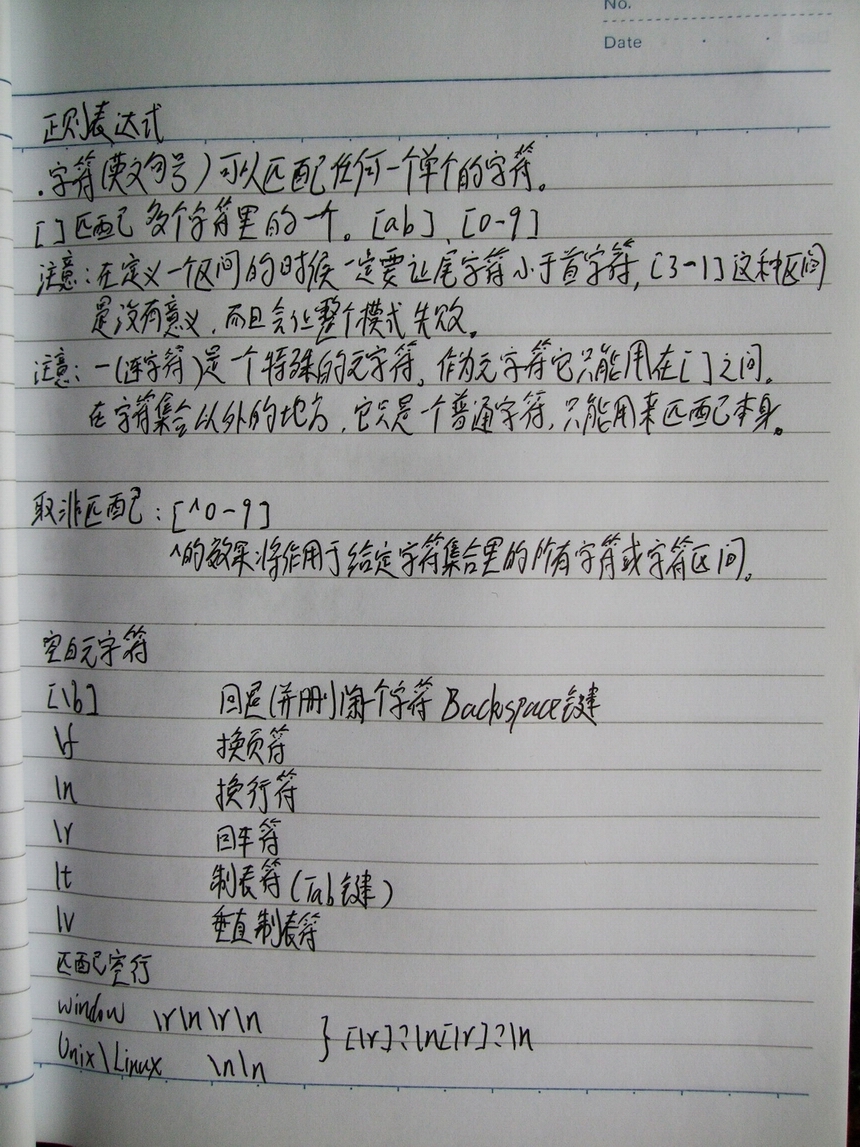 No.
Date
正则表达式
.字符(英文句号)可以匹配任何一个单个的字符。
[ ]匹配多个字符里的一个。[ab]、[0-9]
注意:在定义一个区间的时候一定要让尾字符小于首字符,[3-1]这种区间
是没有意义,而且会让整个模式失败。
注意:-(连字符)是一个特殊的元字符,作为元字符它只能用在[ ]之间。
在字符集合以外的地方,它只是一个普通字符,只能用来匹配本身。
取非匹配:[^0-9]
^的效果将作用于给定字符集合里的所有字符或字符区间。
空白元字符
[\b] 回退(并删)除个字符 Backspace键
\f 换页符
\n 换行符
\r 回车符
\t 制表符(Tab键)
\v 垂直制表符
匹配空行
window \r\n\r\n
} [\r]?\n[\r]?\n
Unix\Linux \n\n